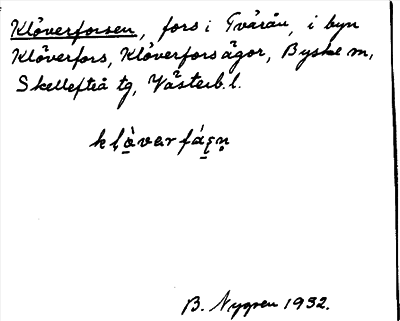 Klöverforsen, fors i Tvärån, i byn
Klöverfors, Klöverfors ägor, Byske sn,
Skellefteå tg, Västerb. l.
klò̱vərfá̱ṣṇ
B. Nygren 1932.